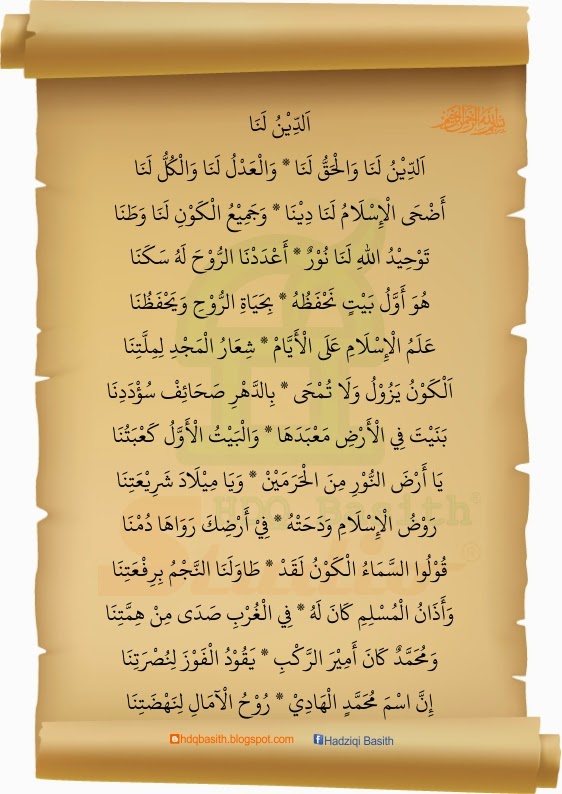 اَلدِّيْنُ لَنَا
بسم الله الرحمن الرحيم
اَلدِّيْنُ لَنَا وَالْحَقُّ لَنَا * وَالْعَدْلُ لَنَا وَالْكُلُّ لَنَا
أَضْحَى الْإِسْلَامُ لَنَا دِيْنَا * وَجَمِيْعُ الْكَوْنِ لَنَا وَطَنَا
تَوْحِيْدُ اللهِ لَنَا نُوْرٌ * أَعْدَدْنَا الرُّوْحَ لَهُ سَكَنَا
هُوَ أَوَّلُ بَيْتٍ نَحْفَظُهُ * بِحَيَاةِ الرُّوْحِ وَيَحْفَظُنَا
عَلَمُ الْإِسْلَامِ عَلَى الْأَيَّامْ * شِعَارُ الْمَجْدِ لِمِلَّتِنَا
اَلْكَوْنُ يَزُوْلُ وَلَا تُمْحَى * بِالدَّهْرِ صَحَائِفْ سُؤْدَدِنَا
بَنَيْتَ فِي الْأَرْضِ مَعْبَدَهَا * وَالْبَيْتُ الْأَوَّلُ كَعْبَتُنَا
يَا أَرْضَ النُّوْرِ مِنَ الْحَرَمَيْنْ * وَيَا مِيْلَادَ شَرِيْعَتِنَا
رَوْضُ الْإِسْلَامِ وَدَحَتْهُ * فِيْ أَرْضِكَ رَوَاهَا دُمْنَا
قُوْلُوا السَّمَاءُ الْكَوْنُ لَقَدْ * طَاوَلَنَا النَّجْمُ بِرِفْعَتِنَا
وَأَذَانُ الْمُسْلِمِ كَانَ لَهُ * فِي الْغُرْبِ صَدَى مِنْ هِمَّتِنَا
وَمُحَمَّدٌ كَانَ أَمِيْرَ الرَّكْبِ * يَقُوْدُ الْفَوْزَ لِنُصْرَتِنَا
إِنَّ اسْمَ مُحَمَّدٍ الْهَادِيْ * رُوْحُ الْآمَالِ لِنَهْضَتِنَا
HDQ Basith®
Studio®
hdqbasith.blogspot.com Hadziqi Basith